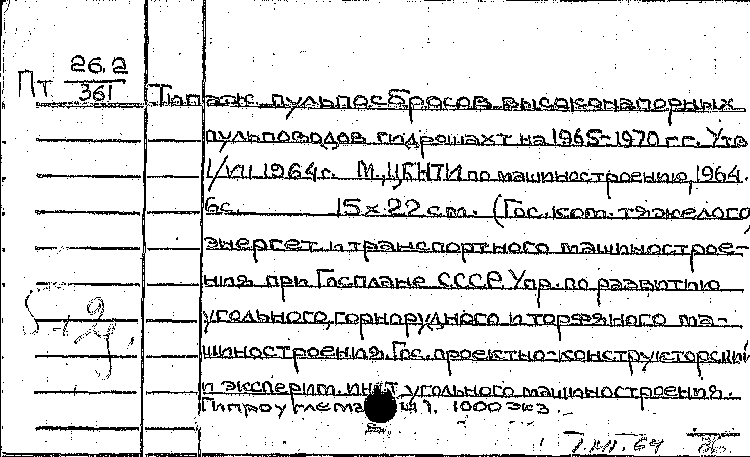 Пт 26.2
361
Типаж пульпосбросов высоконапорных
пульповодов гидрошахт на 1965-1970 гг. Утв
1/VII 1964г. М., ЦБНТИ по машиностроению, 1964.
6с. 15×22 см. (Гос. ком. тяжелого,
энергет. и транспортного машинострое-
ния при Госплане СССР. Упр. по развитию
угольного, горнорудного и торфяного ма-
шиностроения. Гос. проектно-конструкторский
и эксперим. ин-т угольного машиностроения.
Гипроуглемаш). 1000 экз.